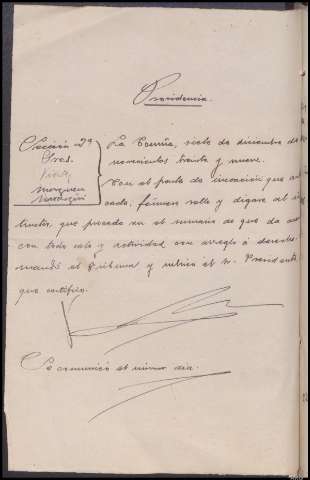 Providencia.
Sección 2ª
Sres.
Viñas
Marquina
La Coruña, siete de diciembre de
novecientos treinta y nueve.
Con el parte de incoación que an
cede, fórmese rollo y dígase al ins
tructor, que proceda en el sumario de que da
con todo celo y actividad con arreglo a derecho.
mandó el Tribunal y rubrica el Sr. Presidente
que certifico.
Se comunicó el mismo día.